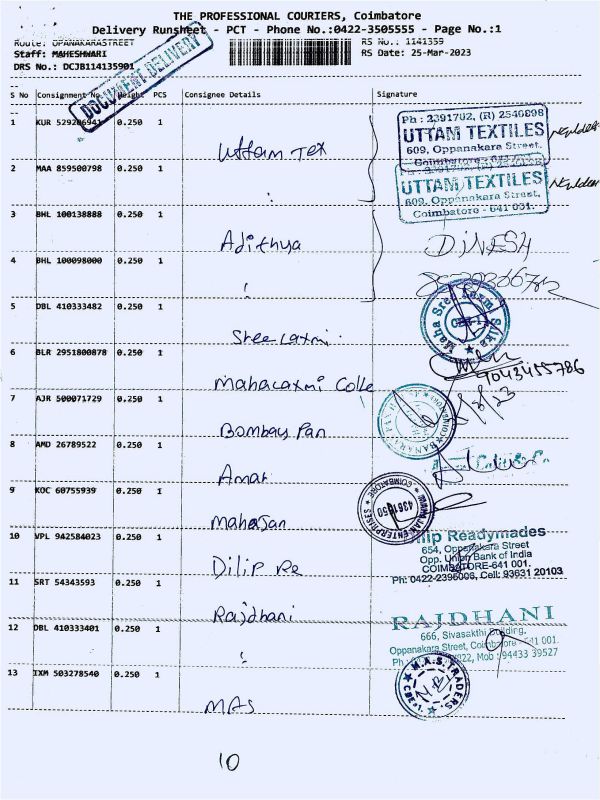 THE PROFESSIONAL COURIERS, Coimbatore
Delivery Runsheet - PCT - Phone No.:0422-3505555 - Page No.:1
Route: OPANAKARASTREET
RS No.: 1141359
Staff: MAHESHWARI
RS Date: 25-Mar-2023
DRS No.: DCJB114135901
DOCUMENT DELIVERY
S No Consignment No. Weight PCS Consignee Details Signature
1 KUR 529206941 0.250 1
Uttam Tex
Ph : 2391702, (R) 2540898
UTTAM TEXTILES
609, Oppanakara Street,
Coimbatore - 641 001.
2 MAA 859500798 0.250 1
"
UTTAM TEXTILES
609, Oppanakara Street,
Coimbatore - 641 001.
3 BHL 100138888 0.250 1
Adithya
DiNESH
4 BHL 100098000 0.250 1
"
5 DBL 410333482 0.250 1
Sree Laxmi
Maha Sree Laxmi Silks
6 BLR 2951800878 0.250 1
Mahalaxmi Colle
9043455786
7 AJR 500071729 0.250 1
Bombay Pan
8 AMD 26789522 0.250 1
Amar
9 KOC 60755939 0.250 1
Mahajan
MAHAJAN ENTERPRISES
COIMBATORE
10 VPL 942584023 0.250 1
Dilip Re
Readymades
654, Oppanakara Street
Opp. Union Bank of India
COIMBATORE-641 001.
Ph: 0422-2396006, Cell: 93631 20103
11 SRT 54343593 0.250 1
Rajdhani
RAJDHANI
666, Sivasakthi Building,
Oppanakara Street, Coimbatore - 641 001.
Mob : 94433 39527
12 DBL 410333401 0.250 1
"
13 IXM 503278540 0.250 1
MAS
M.A.S. TRADERS
CBE-1.
10